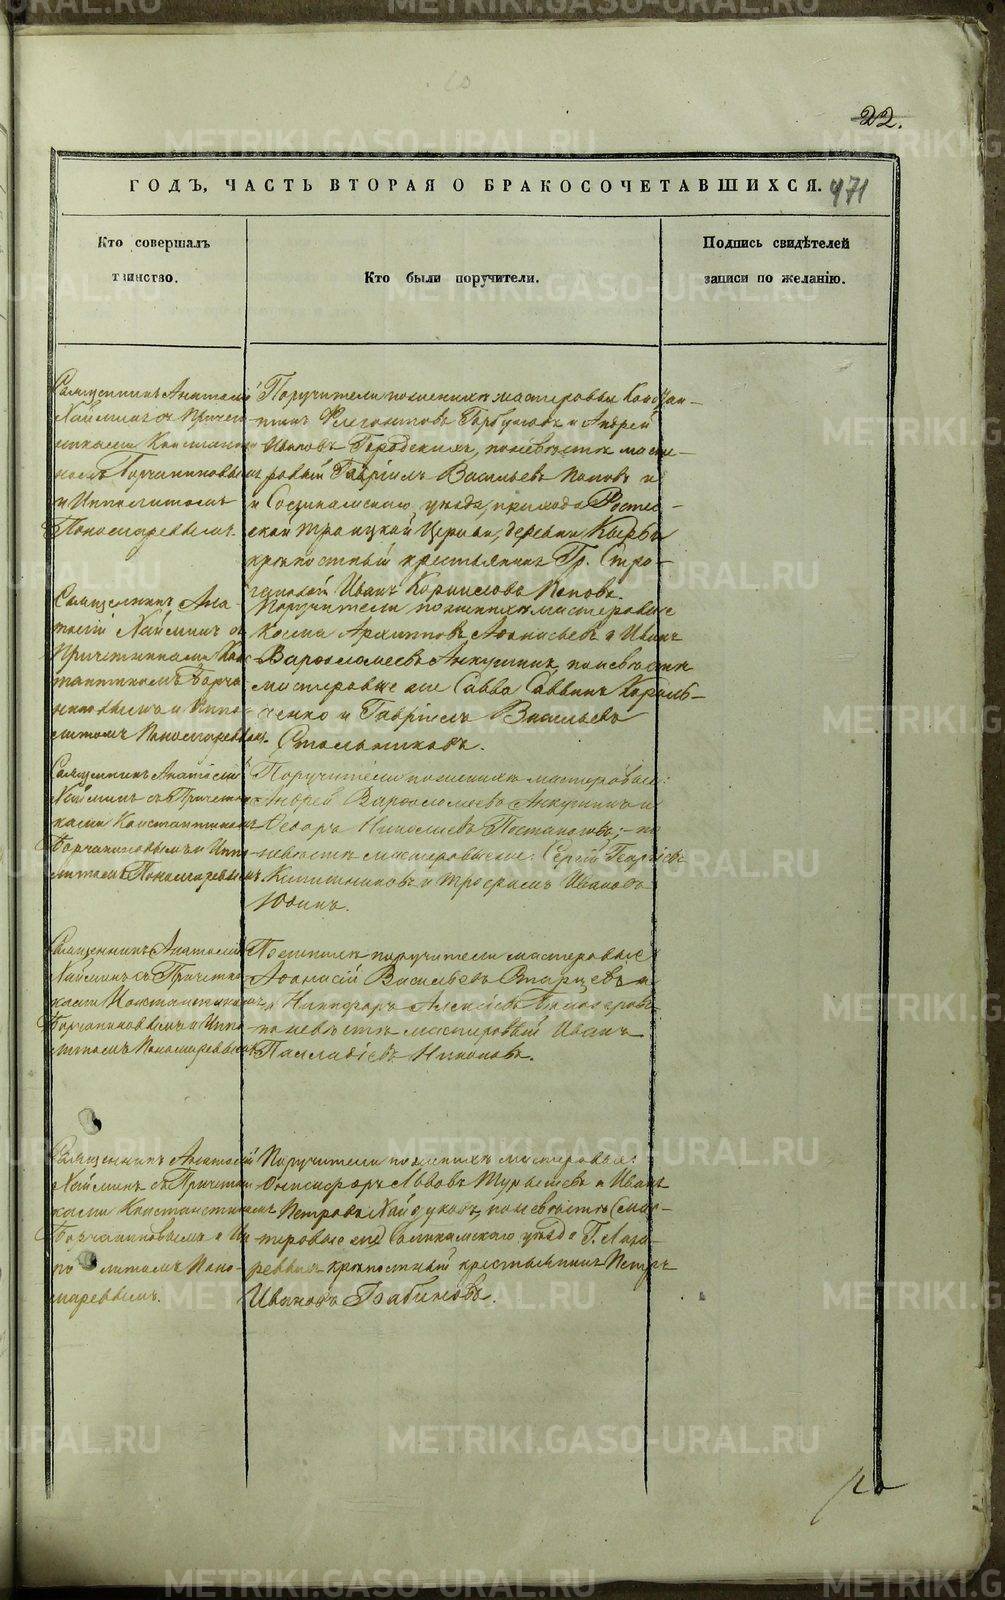 22.
ГОДЪ, ЧАСТЬ ВТОРАЯ О БРАКОСОЧЕТАВШИХСЯ.
471
Кто совершалъ
таинство.
Кто были поручители.
Подпись свидѣтелей
записи по желанію.
Священникъ Анатолій
Хайминъ съ Причет
никами Константи
номъ Горчаниновымъ
и Ипполитомъ
Пономаревымъ.
Поручители по женихѣ мастеровые Констан-
тинъ и Андрей
Ивановъ по невѣстѣ масте-
ровый Гавріилъ Васильевъ Поповъ и
Соликамскаго уѣзда, прихода
ской Троицкой Церкви, деревни
крѣпостный крестьянинъ Гр. Стро-
гановой Иванъ Корниловъ Поповъ.
Священникъ Ана
толій Хайминъ съ
Причетниками Кон
стантиномъ Горча
ниновымъ и Иппо
литомъ Пономаревымъ.
Поручители по женихѣ мастеровые
Косма Архиповъ Аѳонасьевъ и Иванъ
Варѳоломеевъ Анкушинъ, по невѣстѣ
мастеровые же Савва Саввинъ Король-
ченко и Гавріилъ Васильевъ
Стольниковъ.
Священникъ Анатолій
Хайминъ съ Причетни
ками Константиномъ
Горчаниновымъ и Иппо
литомъ Пономаревымъ.
Поручители по женихѣ мастеровые:
Андрей Варѳоломеевъ Анкушинъ и
Ѳедоръ Николаевъ по
невѣстѣ мастеровые же: Сергій Георгіевъ
и Трофимъ Ивановъ
Юдинъ.
Священникъ Анатолій
Хайминъ съ Причетни
ками Константиномъ
Горчаниновымъ и Иппо
литомъ Пономаревымъ
По женихѣ поручители мастеровые
Аѳонасій Васильевъ Старцевъ и
Никифоръ Алексѣевъ
по невѣстѣ мастеровый Иванъ
Палладіевъ Никоновъ.
Священникъ Анатолій
Хайминъ съ Причетни
ками Константиномъ
Горчаниновымъ и Ип
политомъ Поно-
маревымъ.
Поручители по женихѣ мастеровые:
Онисифоръ Львовъ и Иванъ
Петровъ Хайдуковъ, по невѣстѣ
Соликамскаго уѣзда Г. Лаза-
ревыхъ крѣпостный крестьянинъ Петръ
Ивановъ Бабиновъ.
METRIKI.GASO-URAL.RU